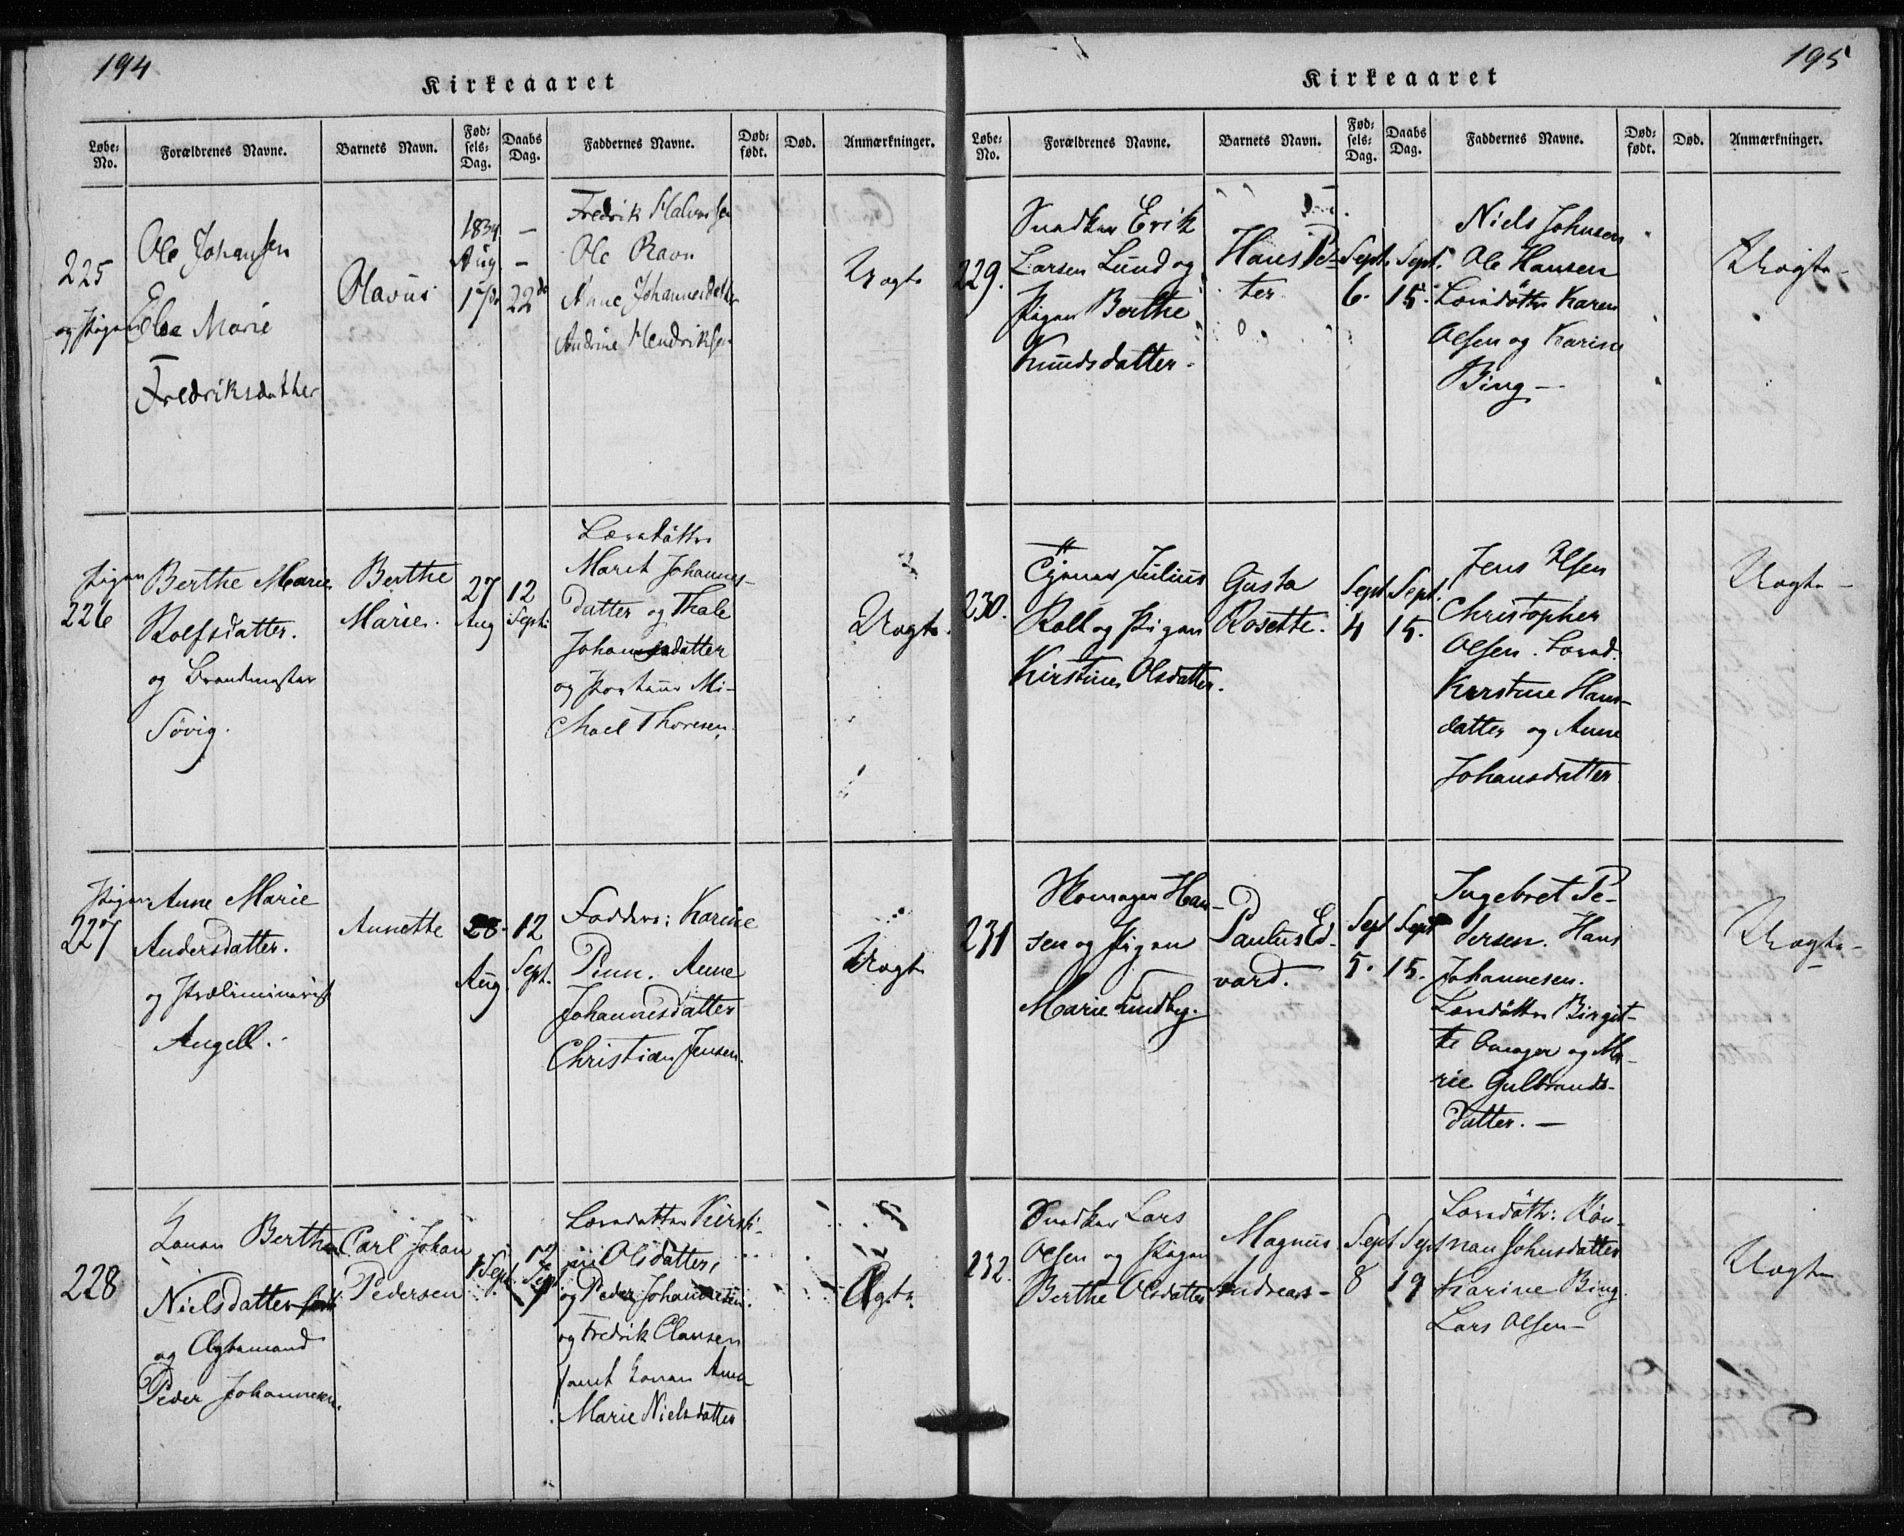 194
Kirkeaaret
Løbe-
No.
Forældrenes Navne.
Barnets Navn.
Fød-
sels-
Dag.
Daabs
Dag.
Faddernes Navne.
Død-
født.
Død.
Anmærkninger.
225
Ole Johansen
og Pigen Else Marie
Fredriksdatter
Olavus
1834
Aug
17de
22de
Fredrik Halvorsen
Ole Ravn
Anne Johannesdatter
Andrine Hendriksen
Uægte
226
Pigen Berthe Marie
Rolfsdatter.
og Brandmester
Søvig.
Berthe
Marie.
27
Aug
12
Sept:
Marit Johannes-
datter og Thale
Johansdatter
og Mi-
chael Thoresen.
Uægte
227
Pigen Anne Marie
Andersdatter.
og Præliminarist
Angell.
Annette
28.
Aug.
12
Sept.
Faddere: Karine
Pinn. Anne
Johannesdatter
Christian Jensen.
Uægte
228
Konen Berthe
Nielsdatter
og Ægtemand
Peder Johannesen.
Carl Johan
Pedersen
1 Sept.
12
Sept
Kirsti-
ne Olsdatter,
og Peder Johannesen.
og Fredrik Clausen
samt Konen Anne
Marie Nielsdatter
Ægte
195
Kirkeaaret
Løbe-
No.
Forældrenes Navne.
Barnets Navn.
Fød-
sels-
Dag.
Daabs
Dag.
Faddernes Navne.
Død-
født.
Død.
Anmærkninger.
229.
Snedker Erik
Larsen Lund og
Pigen Berthe
Knudsdatter.
Hans Pe-
ter.
Sept.
6.
Sept.
15.
Niels Johnsen
Ole Hansen
Karen
Olsen og Karine
Bing —
Uægte
230.
Julius
Roll og Pigen
Kirstine Olsdatter.
Gusta
Rosette.
Sept
4
Sept.
15.
Jens Olsen
Christopher
Olsen.
Kirstine Hans-
datter og Anne
Johansdatter
Uægte —
231
Skomager Han-
sen og Pigen
Marie Lundby.
Paulus Ed-
vard.
Sept
5.
Sept
15.
Ingebret Pe-
dersen. Hans
Johannesen.
Birgit-
te og Ma-
rie Gulbrands-
datter. —
Uægte —
232.
Snedker Lars
Olsen og Pigen
Berthe Olsdatter
Magnus
Andreas —
Sept
8
Sept
19
Røn-
nau Johnsdatter
Karine Bing.
Lars Olsen —
Uægte